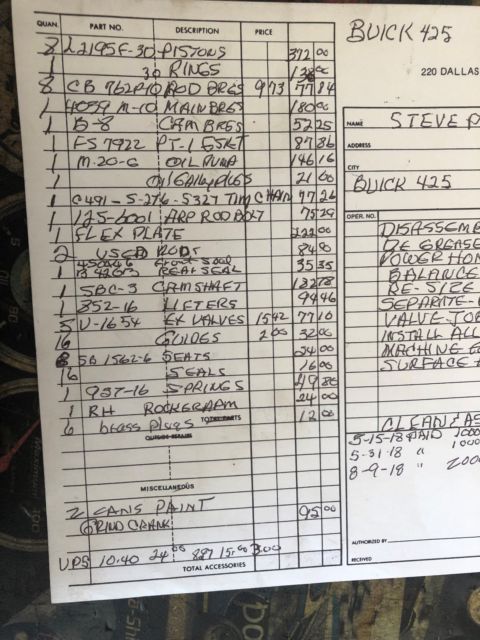 QUAN. PART NO. DESCRIPTION PRICE
8 L2195F-30 PISTONS 372 00
1 30 RINGS
8 CB 762P-10 ROD BRGS 9 73 77 84
1 4059 M-10 MAIN BRGS 180 00
1 B-8 CAM BRGS 52 25
1 FS 7922 PT-1 FSKT 87 86
1 M-20-G OIL PUMP 146 16
OIL GALLY PLUGS 21 00
1 C491-S-276-S327 TIM CHAIN 97 26
1 125-6001 ARP ROD BOLT 75 29
1 FLEX PLATE 222 00
2 USED RODS 84 00
Front Seal
1 REAR SEAL 35 35
1 SBC-3 CAMSHAFT 182 78
1 852-16 LIFTERS 94 46
5 V-1654 EX VALVES 15 42 77 10
16 GUIDES 2 00 32 00
8 SB 1562-6 SEATS 24 00
16 SEALS 16 00
1 937-16 SPRINGS 49 80
1 RH ROCKERARM 24 00
TOTAL PARTS
6 brass plugs 12 00
OUTSIDE REPAIRS
MISCELLANEOUS
2 CANS PAINT 95 00
GRIND CRANK
UPS 10.40 24 00 8 27 15.00 3.00
TOTAL ACCESSORIES
BUICK 425
220 DALLAS
NAME STEVE
ADDRESS
CITY
BUICK 425
OPER. NO.
DISASSEM
DE GREASE
POWER HON
BALANCE
RE-SIZE
SEPARATE-
VALVE-JOB
INSTALL ALL
MACHINE
SURFACE
CLEAN & AS
5-15-18 PAID 1000
5-31-18 " 1000
8-9-18 " 2000
AUTHORIZED BY
RECEIVED